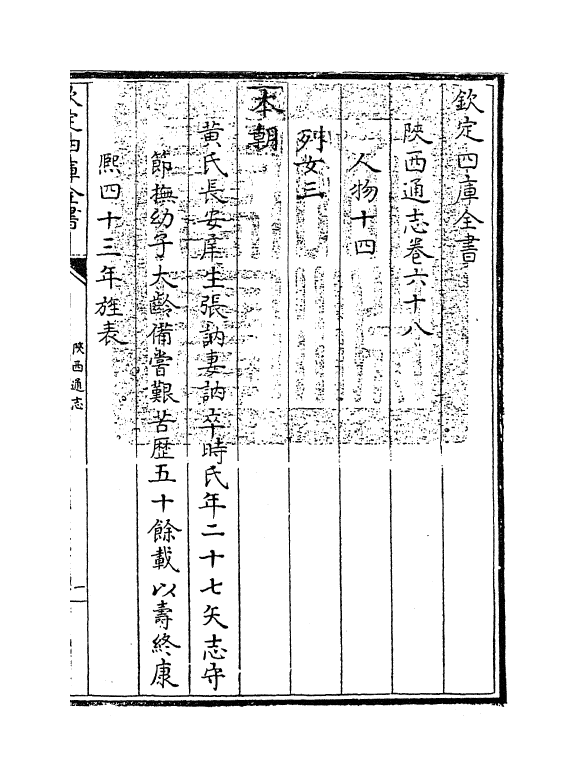 欽定四庫全書
陜西通志卷六十八
人物十四
列女三
本朝
黄氏長安庠生張訥妻訥卒時氏年二十七矢志守
節撫幼子太齡備嘗艱苦歴五十餘載以壽終康
熙四十三年旌表
欽定四庫全書
陜西通志
一